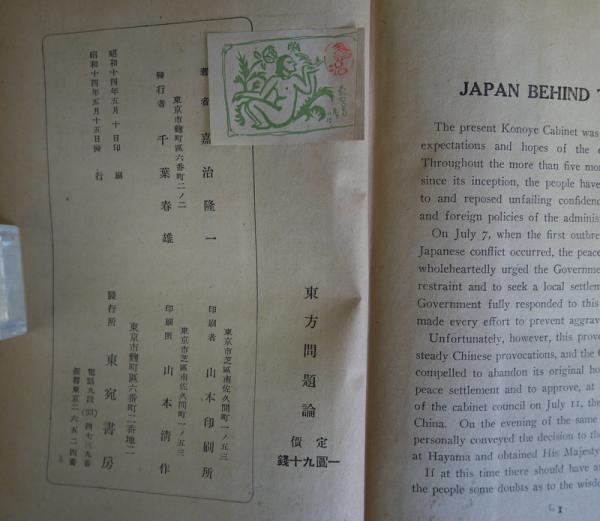 東方問題論
定價
一圓九十錢
昭和十四年五月十日印刷
昭和十四年五月十五日發行
著者 嘉治隆一
東京市麹町區六番町二ノ二
發行者 千葉春雄
東京市芝區南佐久間町一ノ五三
印刷者 山本印刷所
東京市芝區南佐久間町一ノ五三
印刷所 山本清作
東京市麹町區六番町二番地二
發行所 東宛書房
電話九段(33)四七三九番
振替東京二六五二四番
JAPAN BEHIND
The present Konoye Cabinet was
expectations and hopes of the
Throughout the more than five mon
since its inception, the people have
to and reposed unfailing confidenc
and foreign policies of the adminis
On July 7, when the first outbre
Japanese conflict occurred, the peace
wholeheartedly urged the Governme
restraint and to seek a local settlem
Government fully responded to this
made every effort to prevent aggrav
Unfortunately, however, this prove
steady Chinese provocations, and the
compelled to abandon its original ho
peace settlement and to approve, at
of the cabinet council on July 11, the
China. On the evening of the same
personally conveyed the decision to th
at Hayama and obtained His Majesty
If at this time there should have
the people some doubts as to the wisdo
1